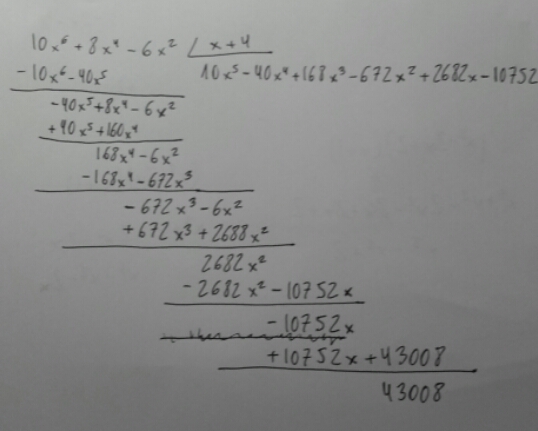 10x⁶ + 8x⁴ - 6x² | x + 4
- 10x⁶ - 40x⁵ 10x⁵ - 40x⁴ + 168x³ - 672x² + 2682x - 10752
- 40x⁵ + 8x⁴ - 6x²
+ 40x⁵ + 160x⁴
168x⁴ - 6x²
- 168x⁴ - 672x³
- 672x³ - 6x²
+ 672x³ + 2688x²
2682x²
- 2682x² - 10752x
- 10752x
+ 10752x + 43008
43008